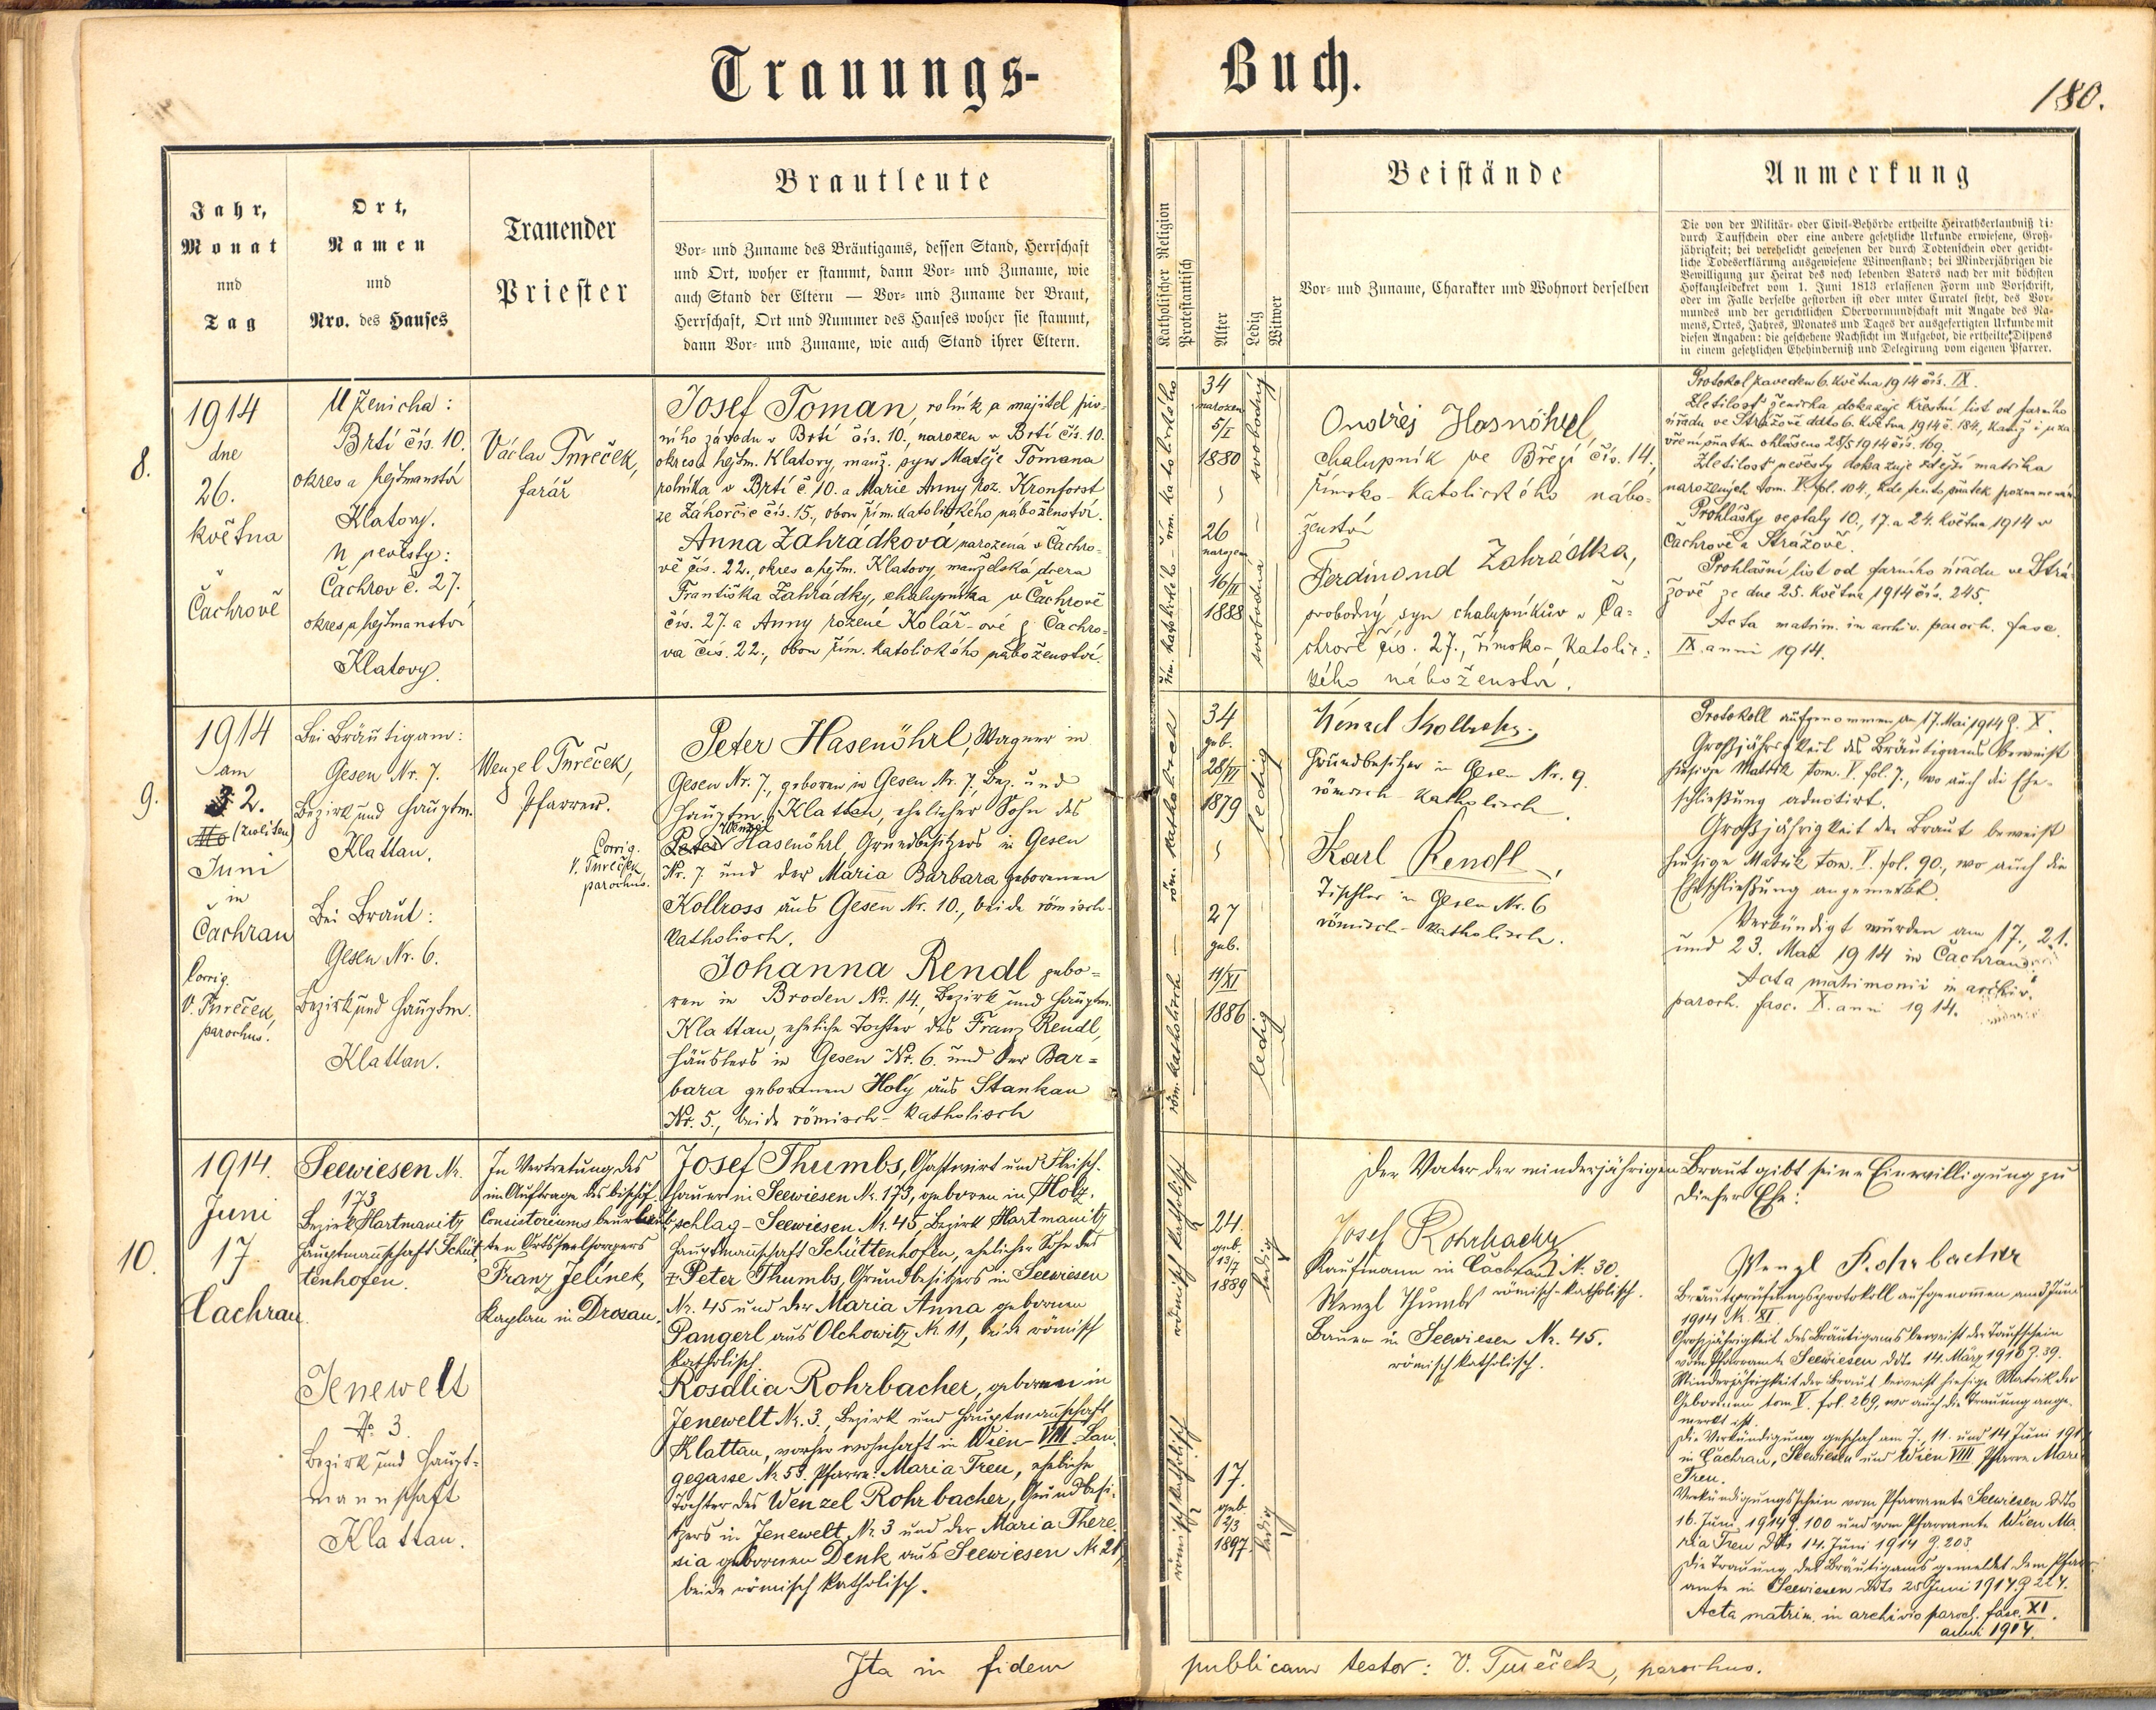 Trauungs-
Buch.
180.
Jahr,
Monat
und
Tag
Ort,
Namen
und
Nro. des Hauses
Trauender
Priester
Brautleute
Vor- und Zuname des Bräutigams, dessen Stand, Herrschaft
und Ort, woher er stammt, dann Vor- und Zuname, wie
auch Stand der Eltern — Vor- und Zuname der Braut,
Herrschaft, Ort und Nummer des Hauses woher sie stammt,
dann Vor- und Zuname, wie auch Stand ihrer Eltern.
Katholischer Religion
Protestantisch
Alter
Ledig
Witwer
Beistände
Vor- und Zuname, Charakter und Wohnort derselben
Anmerkung
Die von der Militär- oder Civil-Behörde ertheilte Heirathserlaubniß die
durch Taufschein oder eine andere gesetzliche Urkunde erwiesene, Groß-
jährigkeit; bei verehelicht gewesenen der durch Todtenschein oder gericht-
liche Todeserklärung ausgewiesene Witwenstand; bei Minderjährigen die
Bewilligung zur Heirat des noch lebenden Vaters nach der mit höchsten
Hofkanzleidekret vom 1. Juni 1813 erlassenen Form und Vorschrift,
oder im Falle derselbe gestorben ist oder unter Curatel steht, des Vor-
mundes und der gerichtlichen Obervormundschaft mit Angabe des Na-
mens, Ortes, Jahres, Monates und Tages der ausgefertigten Urkunde mit
diesen Angaben: die geschehene Nachsicht im Aufgebot, die ertheilte Dispens
in einem gesetzlichen Ehehinderniß und Delegirung vom eigenen Pfarrer.
8.
1914
dne
26.
května
v
Čachrově
U ženicha:
Brtí čís. 10.
okres a hejtmanství
Klatovy.
U nevěsty:
Čachrov č. 27.
okres a hejtmanství
Klatovy.
Václav Tureček,
farář
Josef Toman, rolník a majitel piv-
ního závodu v Brtí čís. 10., narozen v Brtí čís. 10.
okres a hejtm. Klatovy, manž. syn Matěje Tomana
rolníka v Brtí č. 10. a Marie Anny roz. Kronforst
ze Záhorčic čís. 15., obou řím. katolického náboženství.
Anna Zahrádková, narozená v Čachro-
vě čís. 22., okres a hejtm. Klatovy, manželská dcera
Františka Zahrádky, chalupníka v Čachrově
čís. 27. a Anny rozené Kolář-ové z Čachro-
va čís. 22., obou řím. katolického náboženství.
řím. katolického – řím. katolického
34
narozen
5/I
1880
26
narozena
16/II
1888
svobodný
svobodná
Ondřej Hasnöhrl,
chalupník ve Březí čís. 14.,
římsko-katolického nábo-
ženství
Ferdinand Zahrádka,
svobodný syn chalupníkův v Ča-
chrově čís. 27., římsko-katolic-
kého náboženství.
Protokol zaveden 6. května 1914 čís. IX.
Zletilost ženicha dokazuje křestní list od farního
úřadu ve Strážově ddto 6. května 1914 č. 184., kamž i uza-
vření sňatku ohlášeno 28/5 1914 čís. 169.
Zletilost nevěsty dokazuje zdejší matrika
narozených tom. V. fol. 104., kde tento sňatek poznamenán
Prohlášky se staly 10., 17. a 24. května 1914 v
Čachrově a Strážově.
Prohlašní list od farního úřadu ve Strá-
žově ze dne 25. května 1914 čís. 245.
Acta matrim. in archiv. paroch. fasc.
IX. anni 1914.
9.
1914
am
2.
(zweiten)
Juni
in
Čachrau
Corrig.
V. Tureček,
parochus.
Bei Bräutigam:
Gesen Nr. 7.
Bezirk und Hauptm.
Klattau.
Bei Braut:
Gesen Nr. 6.
Bezirk und Hauptm.
Klattau.
Wenzel Tureček,
Pfarrer.
Corrig.
V. Tureček
parochus.
Peter Hasenöhrl, Wagner in
Gesen Nr. 7., geboren in Gesen Nr. 7., Bez. und
Hauptm. Klattau, ehelicher Sohn des
Wenzel
Peter Hasenöhrl, Grundbesitzers in Gesen
Nr. 7 und der Maria Barbara geborenen
Kollross aus Gesen Nr. 10., beide römisch-
katholisch.
Johanna Rendl gebo-
ren in Broden Nr. 14., Bezirk und Hauptm.
Klattau, eheliche Tochter des Franz Rendl,
Häuslers in Gesen Nr. 6. und der Bar-
bara geborenen Holý aus Stankau
Nr. 5., beide römisch-katholisch
röm. katholisch — röm. katholisch
34
geb.
28/VI
1879
27
geb.
11/XI
1886
ledig
ledig
Grundbesitzer in Gesen Nr. 9.
römisch-katholisch.
Karl Rendl,
Tischler in Gesen Nr. 6
römisch-katholisch.
Protokoll aufgenommen am 17. Mai 1914 Z. X.
Großjährigkeit des Bräutigams beweist
hiesige Matrik tom. V. fol. 7., wo auch die Ehe-
schließung adnotirt.
Großjährigkeit der Braut beweist
hiesige Matrik tom. V. fol. 90., wo auch die
Eheschließung angemerkt.
Verkündigt wurden am 17., 21.
und 23. Mai 1914 in Čachrau.
Acta matrimonii in archiv.
paroch. fasc. X. anni 1914.
10.
1914.
Juni
17
Čachrau.
Seewiesen Nr.
173
Bezirk Hartmanitz
Hauptmannschaft Schüt-
tenhofen.
Jenewelt
Nr. 3.
Bezirk und Haupt-
mannschaft
Klattau.
In Vertretung des
im Auftrage des bischöf.
Consistoriums beurlaub-
ten Ortsseelsorgers
Franz Jelínek,
Kaplan in Drosau.
Josef Thumbs, Gastwirt und Fleisch-
hauer in Seewiesen Nr. 173, geboren in Holz-
schlag-Seewiesen Nr. 45, Bezirk Hartmanitz
Hauptmannschaft Schüttenhofen, ehelicher Sohn des
Peter Thumbs, Grundbesitzers in Seewiesen
Nr. 45 und der Maria Anna gebornen
Pangerl aus Olchowitz Nr. 11, beide römisch
katholisch.
Rosalia Rohrbacher, geboren in
Jenewelt Nr. 3, Bezirk und Hauptmannschaft
Klattau, vorher wohnhaft in Wien VIII. Lan-
gegasse Nr. 53. Pfarre: Maria Treu, eheliche
Tochter des Wenzel Rohrbacher, Grundbesi-
tzers in Jenewelt Nr. 3 und der Maria There-
sia gebornen Denk aus Seewiesen Nr 21,
beide römisch katholisch.
römisch katholisch
römisch katholisch
24.
geb.
13/7
1889
17.
geb
12/3
1897.
ledig
ledig
Der Vater der minderjährigen Braut gibt seine Einwilligung zu
dieser Ehe:
Josef Rohrbacher
Kaufmann in Čachrau Nr. 30.
römisch-katholisch.
Wenzl Thumbs
Bauer in Seewiesen Nr. 45.
römisch katholisch.
Wenzl Rohrbacher
Brautprüfungsprotokoll aufgenommen am 3 Juni
1914 Nr. XI.
Großjährigkeit des Bräutigams beweist der Taufschein
vom Pfarramte Seewiesen ddto 14. März 1910 Z. 39.
Minderjährigkeit der Braut beweist hiesige Matrik der
Gebornen tom V. fol. 269, wo auch die Trauung ange-
merkt ist.
Die Verkündigung geschah am 7., 11. und 14 Juni 1914
in Čachrau, Seewiesen und Wien VIII Pfarre Maria
Treu.
Verkündigungsschein vom Pfarramte Seewiesen ddto
16. Juni 1914 Z. 100 und vom Pfarramte Wien Ma-
ria Treu ddto 14. Juni 1914 Z. 203.
Die Trauung des Bräutigams gemeldet dem Pfarr-
amte in Seewiesen ddto 28 Juni 1914 Z 227.
Acta matrim. in archivio paroch. fasc. XI.
anni 1914.
Ita in fidem
publicam testor: V. Tureček, parochus.